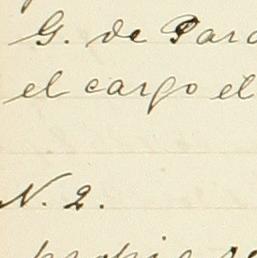 G. de Par
el cargo el
N. 2.